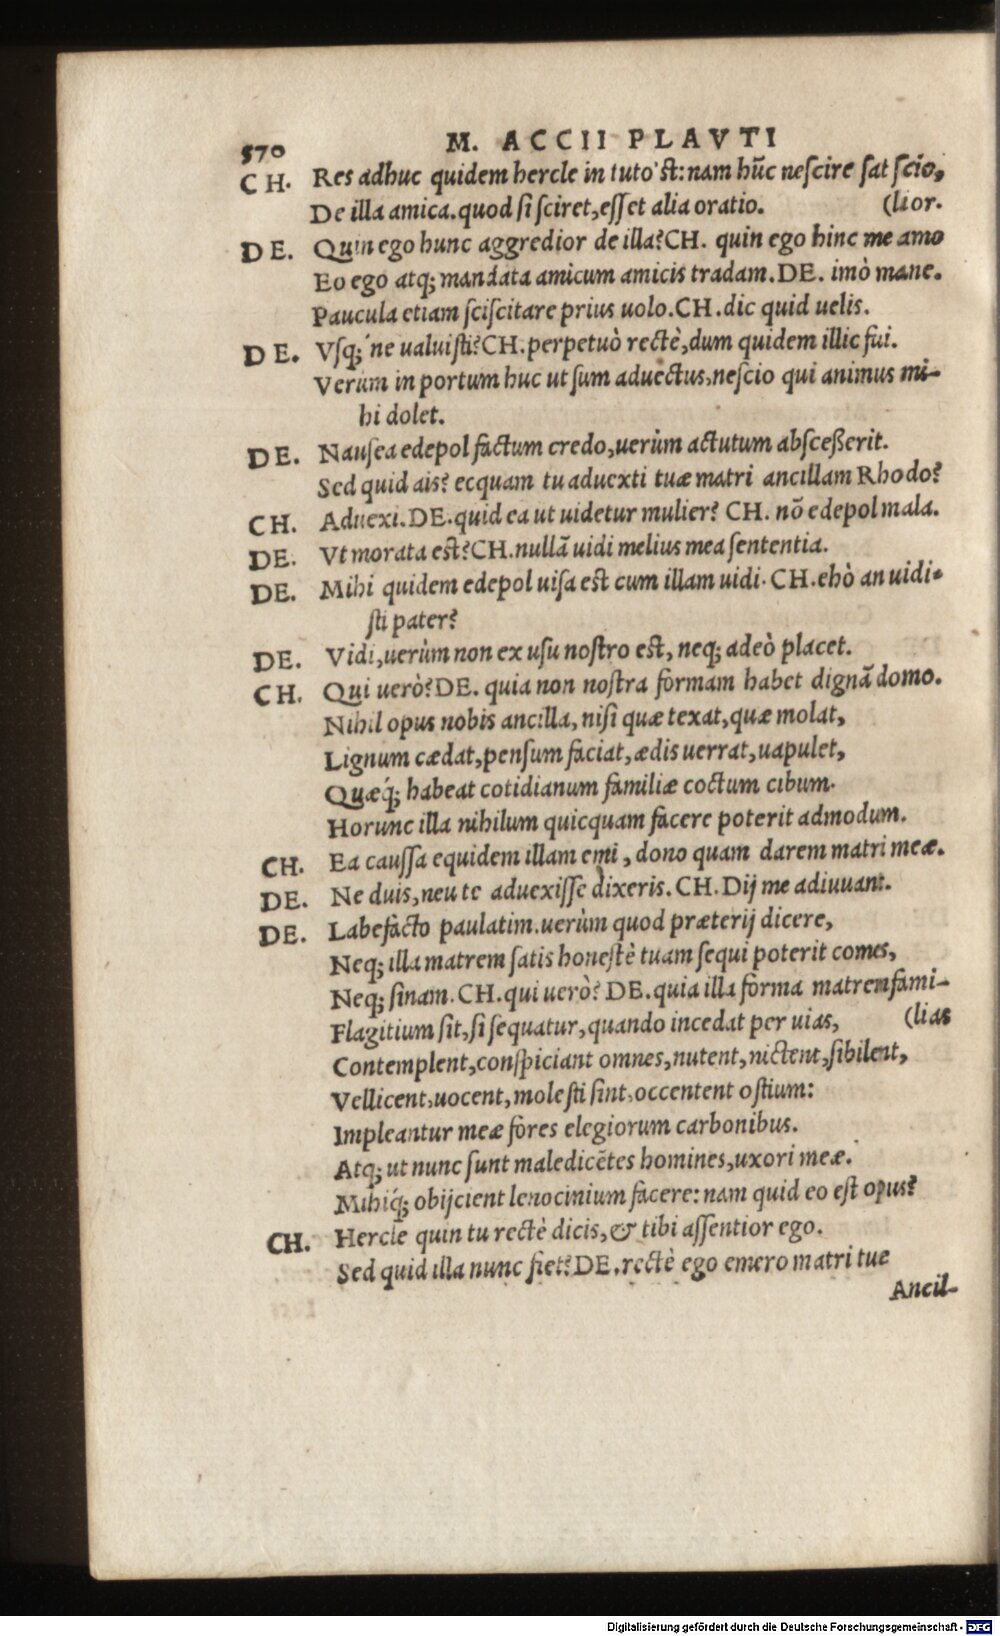 570 M. ACCII PLAVTI
CH. Res adhuc quidem hercle in tuto'st: nam hūc nescire sat scio,
De illa amica. quod si sciret, esset alia oratio. (lior.
DE. Quin ego hunc aggredior de illa? CH. quin ego hinc me amo
Eo ego atq; mandata amicum amicis tradam. DE. imò mane.
Paucula etiam sciscitare prius uolo. CH. dic quid uelis.
DE. Vsq;'ne ualuisti? CH. perpetuò rectè, dum quidem illic fui.
Verùm in portum huc ut sum aduectus, nescio qui animus mi-
hi dolet.
DE. Nausea edepol factum credo, uerùm actutum abscesserit.
Sed quid ais? ecquam tu aduexti tuæ matri ancillam Rhodo?
CH. Aduexi. DE. quid ea ut uidetur mulier? CH. nō edepol mala.
DE. Vt morata est? CH. nullā uidi melius mea sententia.
DE. Mihi quidem edepol uisa est cum illam uidi. CH. ehò an uidi-
sti pater?
DE. Vidi, uerùm non ex usu nostro est, neq; adeò placet.
CH. Qui uerò? DE. quia non nostra formam habet dignā domo.
Nihil opus nobis ancilla, nisi quæ texat, quæ molat,
Lignum cædat, pensum faciat, ædis uerrat, uapulet,
Quæq́; habeat cotidianum familiæ coctum cibum.
Horunc illa nihilum quicquam facere poterit admodum.
CH. Ea caussa equidem illam emi, dono quam darem matri meæ.
DE. Ne duis, neu te aduexisse dixeris. CH. Dij me adiuuant.
DE. Labefacto paulatim. uerùm quod præterij dicere,
Neq; illa matrem satis honestè tuam sequi poterit comes,
Neq; sinam. CH. qui uerò? DE. quia illa forma matremfami-
Flagitium sit, si sequatur, quando incedat per uias, (lias
Contemplent, conspiciant omnes, nutent, nictent, sibilent,
Vellicent, uocent, molesti sint, occentent ostium:
Impleantur meæ fores elegiorum carbonibus.
Atq; ut nunc sunt maledicētes homines, uxori meæ.
Mihiq́; obijcient lenocinium facere: nam quid eo est opus?
CH. Hercle quin tu rectè dicis, & tibi assentior ego.
Sed quid illa nunc fiet? DE. rectè ego emero matri tue
Ancil-
Digitalisierung gefördert durch die Deutsche Forschungsgemeinschaft - DFG